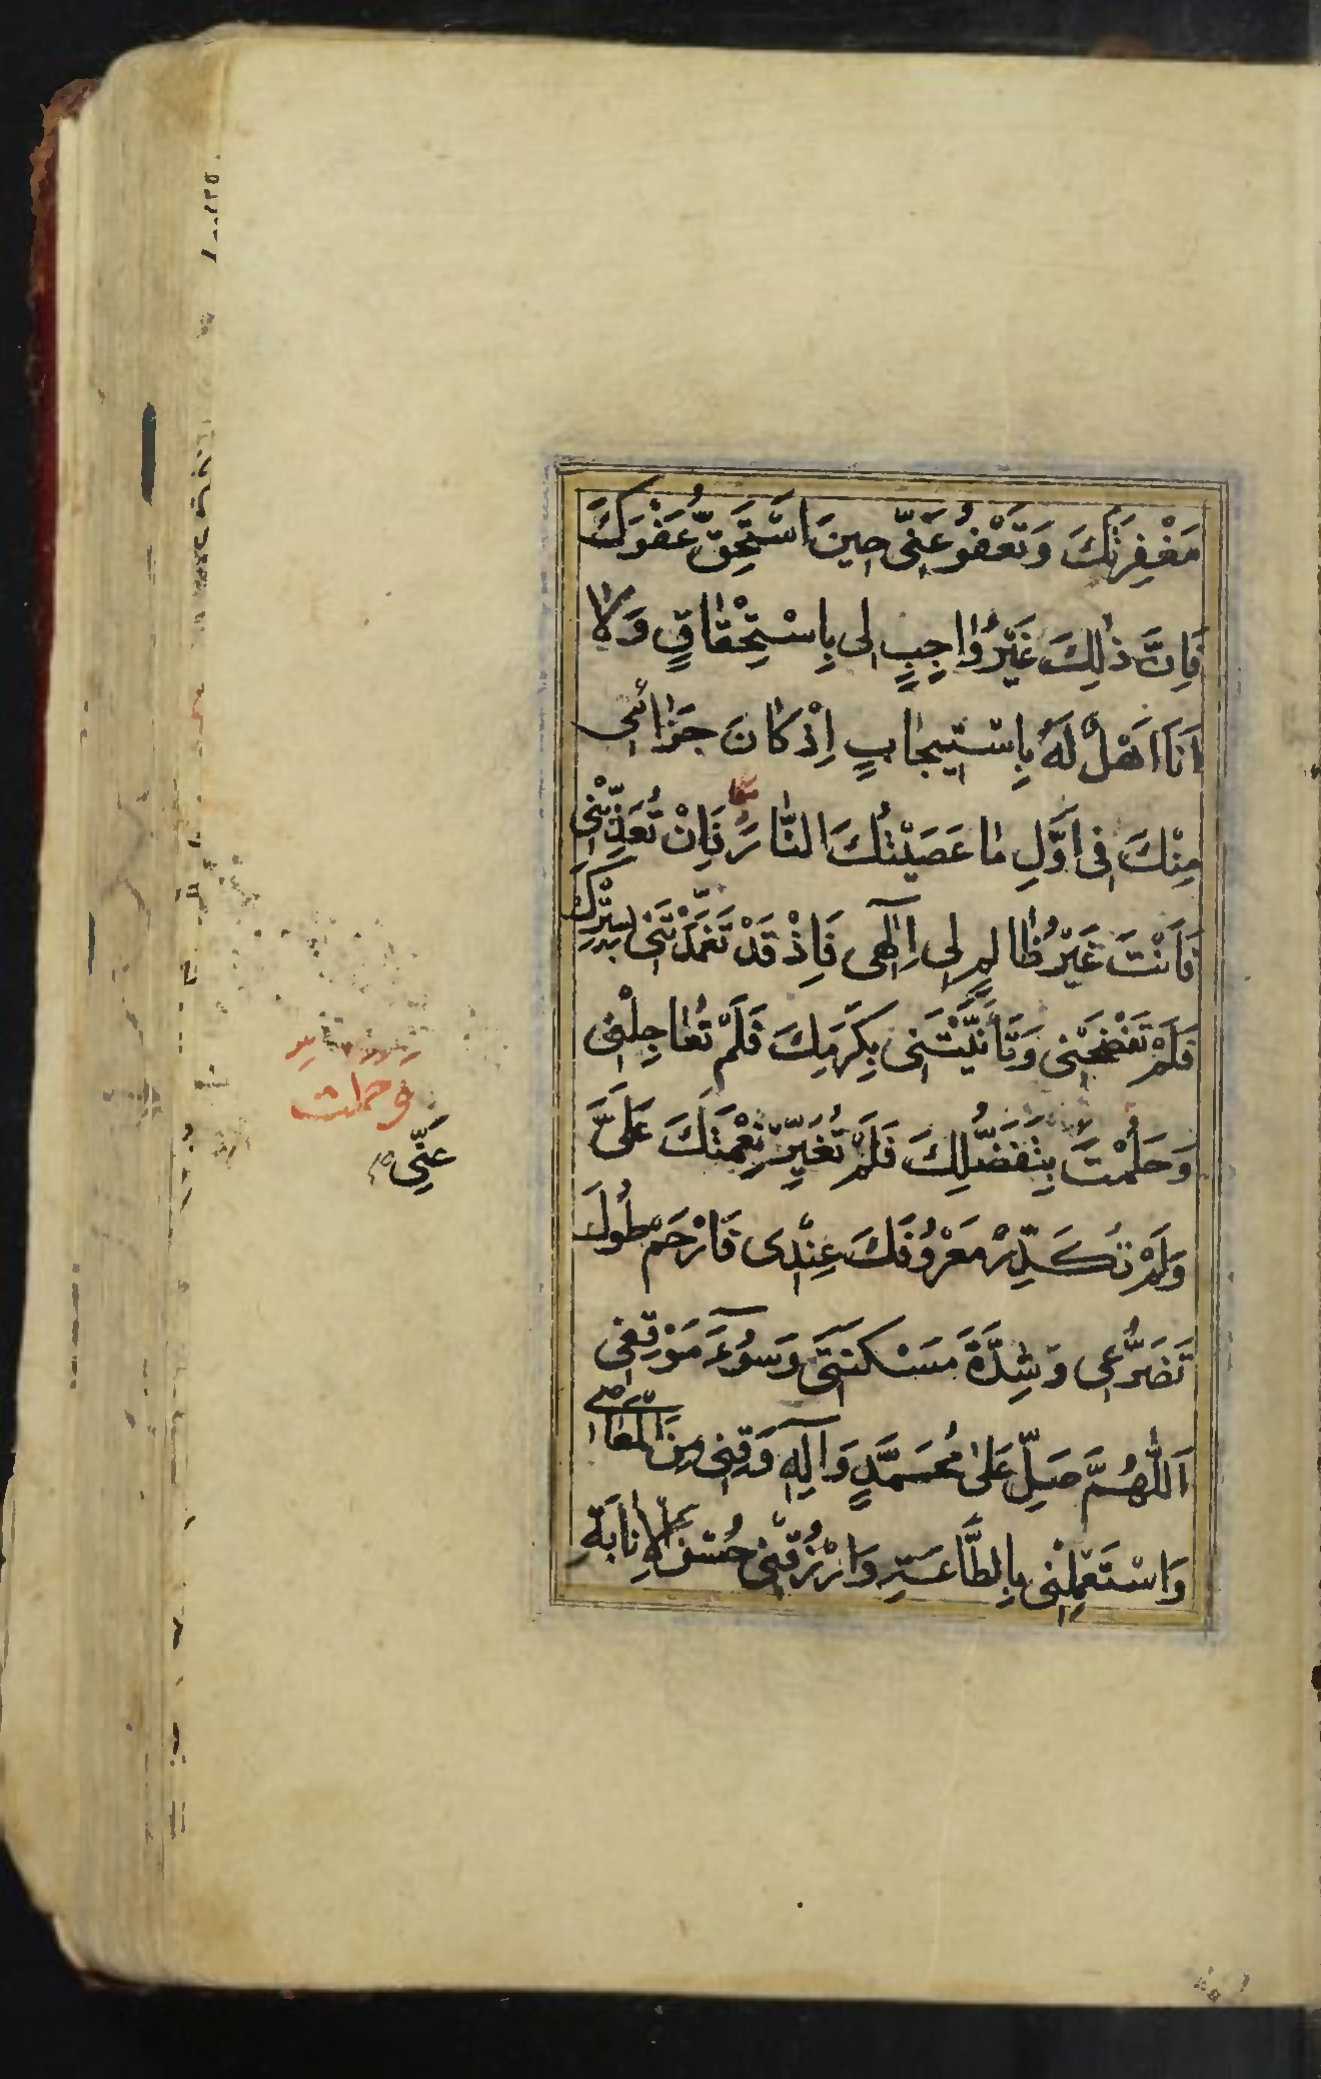 مَغْفِرَتَكَ وَتَعْفُوُ عَنّى حِينَ اَسْتَحِقُّ عَفْوَكَ
فَاِنَّ ذٰلِكَ غَيْرُ وٰاجِبٍ لى بِاِسْتِحْقٰاقٍ وَلٰا
اَنَا اَهْلٌ لَهُ بِاسْتيجٰابٍ اِذْ كٰانَ جَزٰائى
مِنْكَ فى اَوَّلِ مٰا عَصَيْتُكَ النّٰارَ فَاِنْ تُعَذِّبْنى
فَاَنْتَ غَيْرُ ظٰالِمٍ لى اِلٰهى فَاِذْ قَدْ تَغَمَّدْتَنى بِسِتْرِكَ
فَلَمْ تَفْضَحْنى وَتَاَنَّيْتَنى بِكَرَمِكَ فَلَمْ تُعٰاجِلْنى
وَحَلُمْتَ بِتَفَضُّلِكَ فَلَمْ تُغَيِّرْ نِعْمَتَكَ عَلَىَّ
وَلَمْ تُكَدِّرْ مَعْرُوفَكَ عِنْدى فَارْحَمْ طُولَ
تَضَرُّعى وَشِدَّةَ مَسْكَنَتى وَسُوۤءَ مَوْقِفى
اَللّٰهُمَّ صَلِّ عَلىٰ مُحَمَّدٍ وَآلِهِ وَقِنى مِنَ الْمَعٰاصى
وَاسْتَعْمِلْنى بِالطَّاعَةِ وَارْزُقْنى حُسْنَ الْاِنٰابَةِ
وحملت
عَنّى